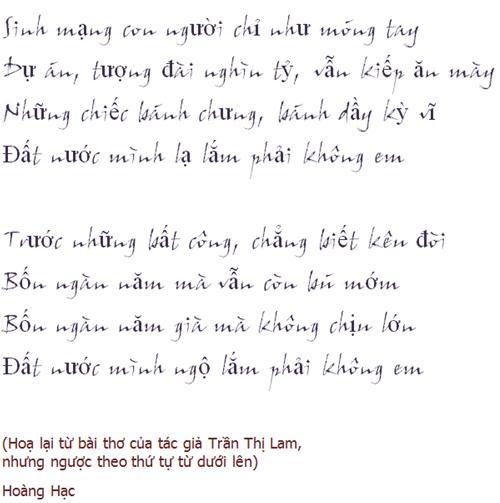 Sinh mạng con người chỉ như móng tay
Dự án, tượng đài nghìn tỷ, vẫn kiếp ăn mày
Những chiếc bánh chưng, bánh dầy kỳ vĩ
Đất nước mình lạ lắm phải không em
Trước những bất công, chẳng biết kêu đòi
Bốn ngàn năm mà vẫn còn bú mớm
Bốn ngàn năm già mà không chịu lớn
Đất nước mình ngộ lắm phải không em
(Hoạ lại từ bài thơ của tác giả Trần Thị Lam,
nhưng ngược theo thứ tự từ dưới lên)
Hoàng Hạc